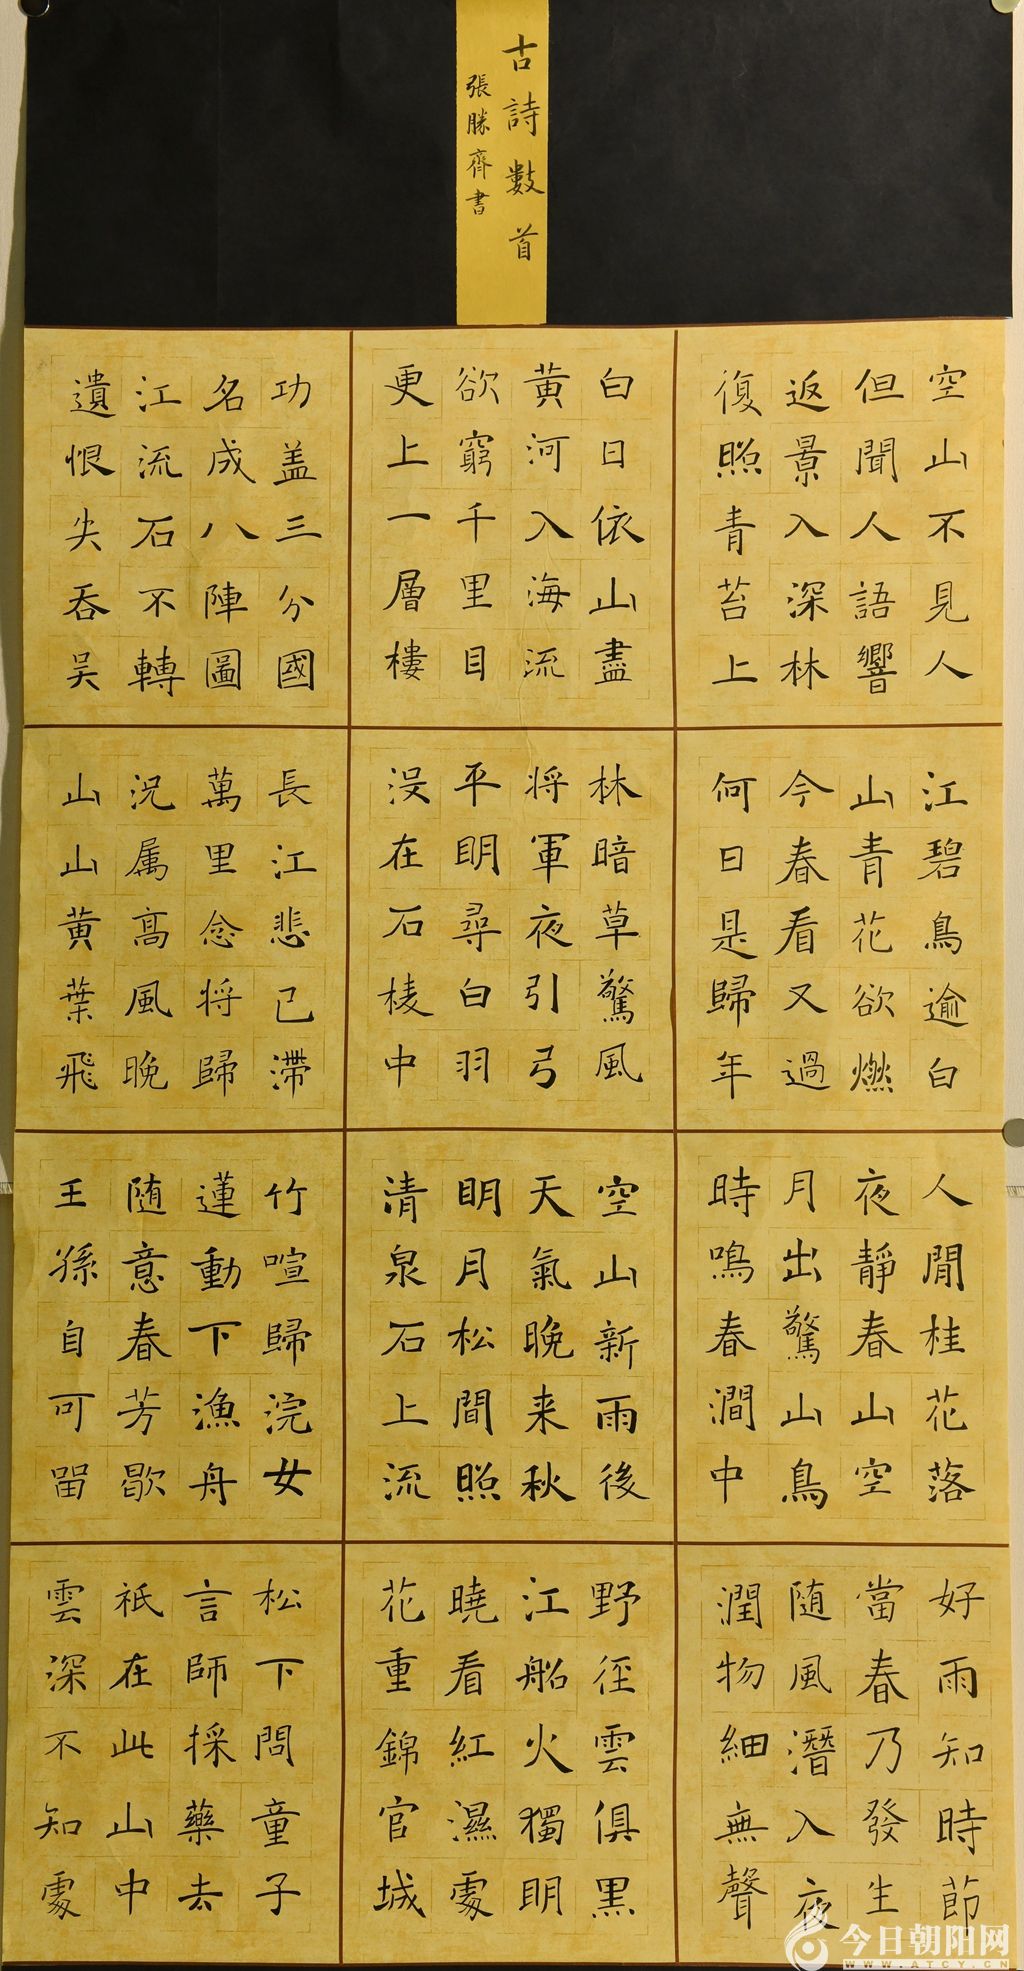 古詩數首
張勝齊書
空山不見人
但聞人語響
返景入深林
復照青苔上
白日依山盡
黄河入海流
欲窮千里目
更上一層樓
功盖三分國
名成八陣圖
江流石不轉
遺恨失吞吴
江碧鳥逾白
山青花欲燃
今春看又過
何日是歸年
林暗草驚風
将軍夜引弓
平明尋白羽
没在石棱中
長江悲已滯
萬里念将歸
况属高風晚
山山黄葉飛
人閒桂花落
夜靜春山空
月出驚山鳥
時鳴春澗中
空山新雨後
天氣晚来秋
明月松間照
清泉石上流
竹喧歸浣女
蓮動下漁舟
随意春芳歇
王孫自可留
好雨知時節
當春乃發生
随風潛入夜
潤物細無聲
野径雲俱黑
江船火獨明
曉看紅濕處
花重錦官城
松下問童子
言師採藥去
祇在此山中
雲深不知處
今日朝阳网
WWW.ATCY.CN